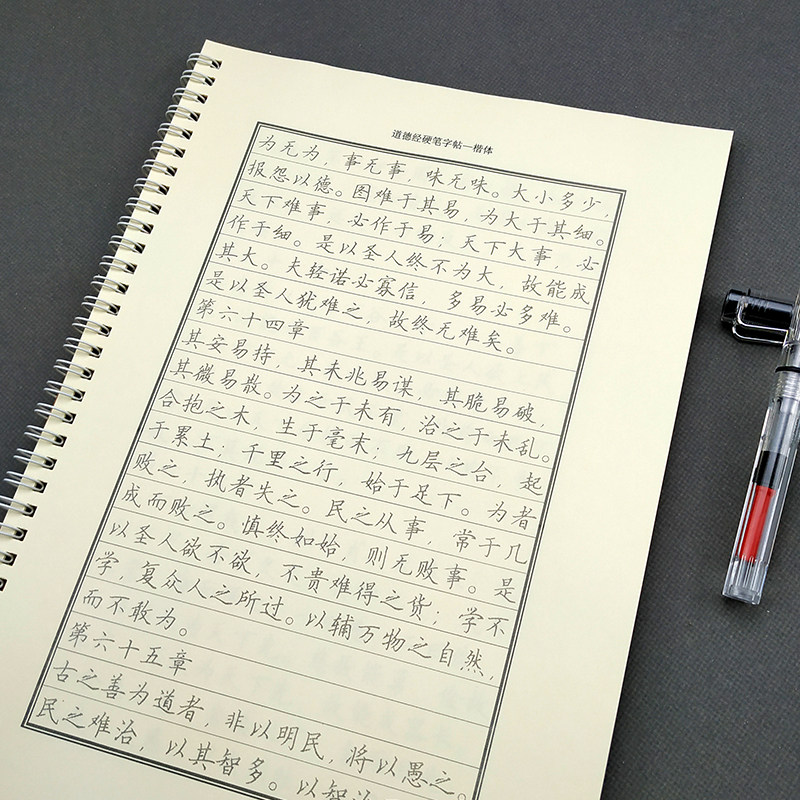 道德经硬笔字帖一楷体
为无为，事无事，味无味。大小多少，
报怨以德。图难于其易，为大于其细。
天下难事，必作于易；天下大事，必
作于细。是以圣人终不为大，故能成
其大。夫轻诺必寡信，多易必多难。
是以圣人犹难之，故终无难矣。
第六十四章
其安易持，其未兆易谋，其脆易破，
其微易散。为之于未有，治之于未乱。
合抱之木，生于毫末；九层之台，起
于累土；千里之行，始于足下。为者
败之，执者失之。民之从事，常于几
成而败之。慎终如始，则无败事。是
以圣人欲不欲，不贵难得之货；学不
学，复众人之所过。以辅万物之自然，
而不敢为。
第六十五章
古之善为道者，非以明民，将以愚之。
民之难治，以其智多。以智治